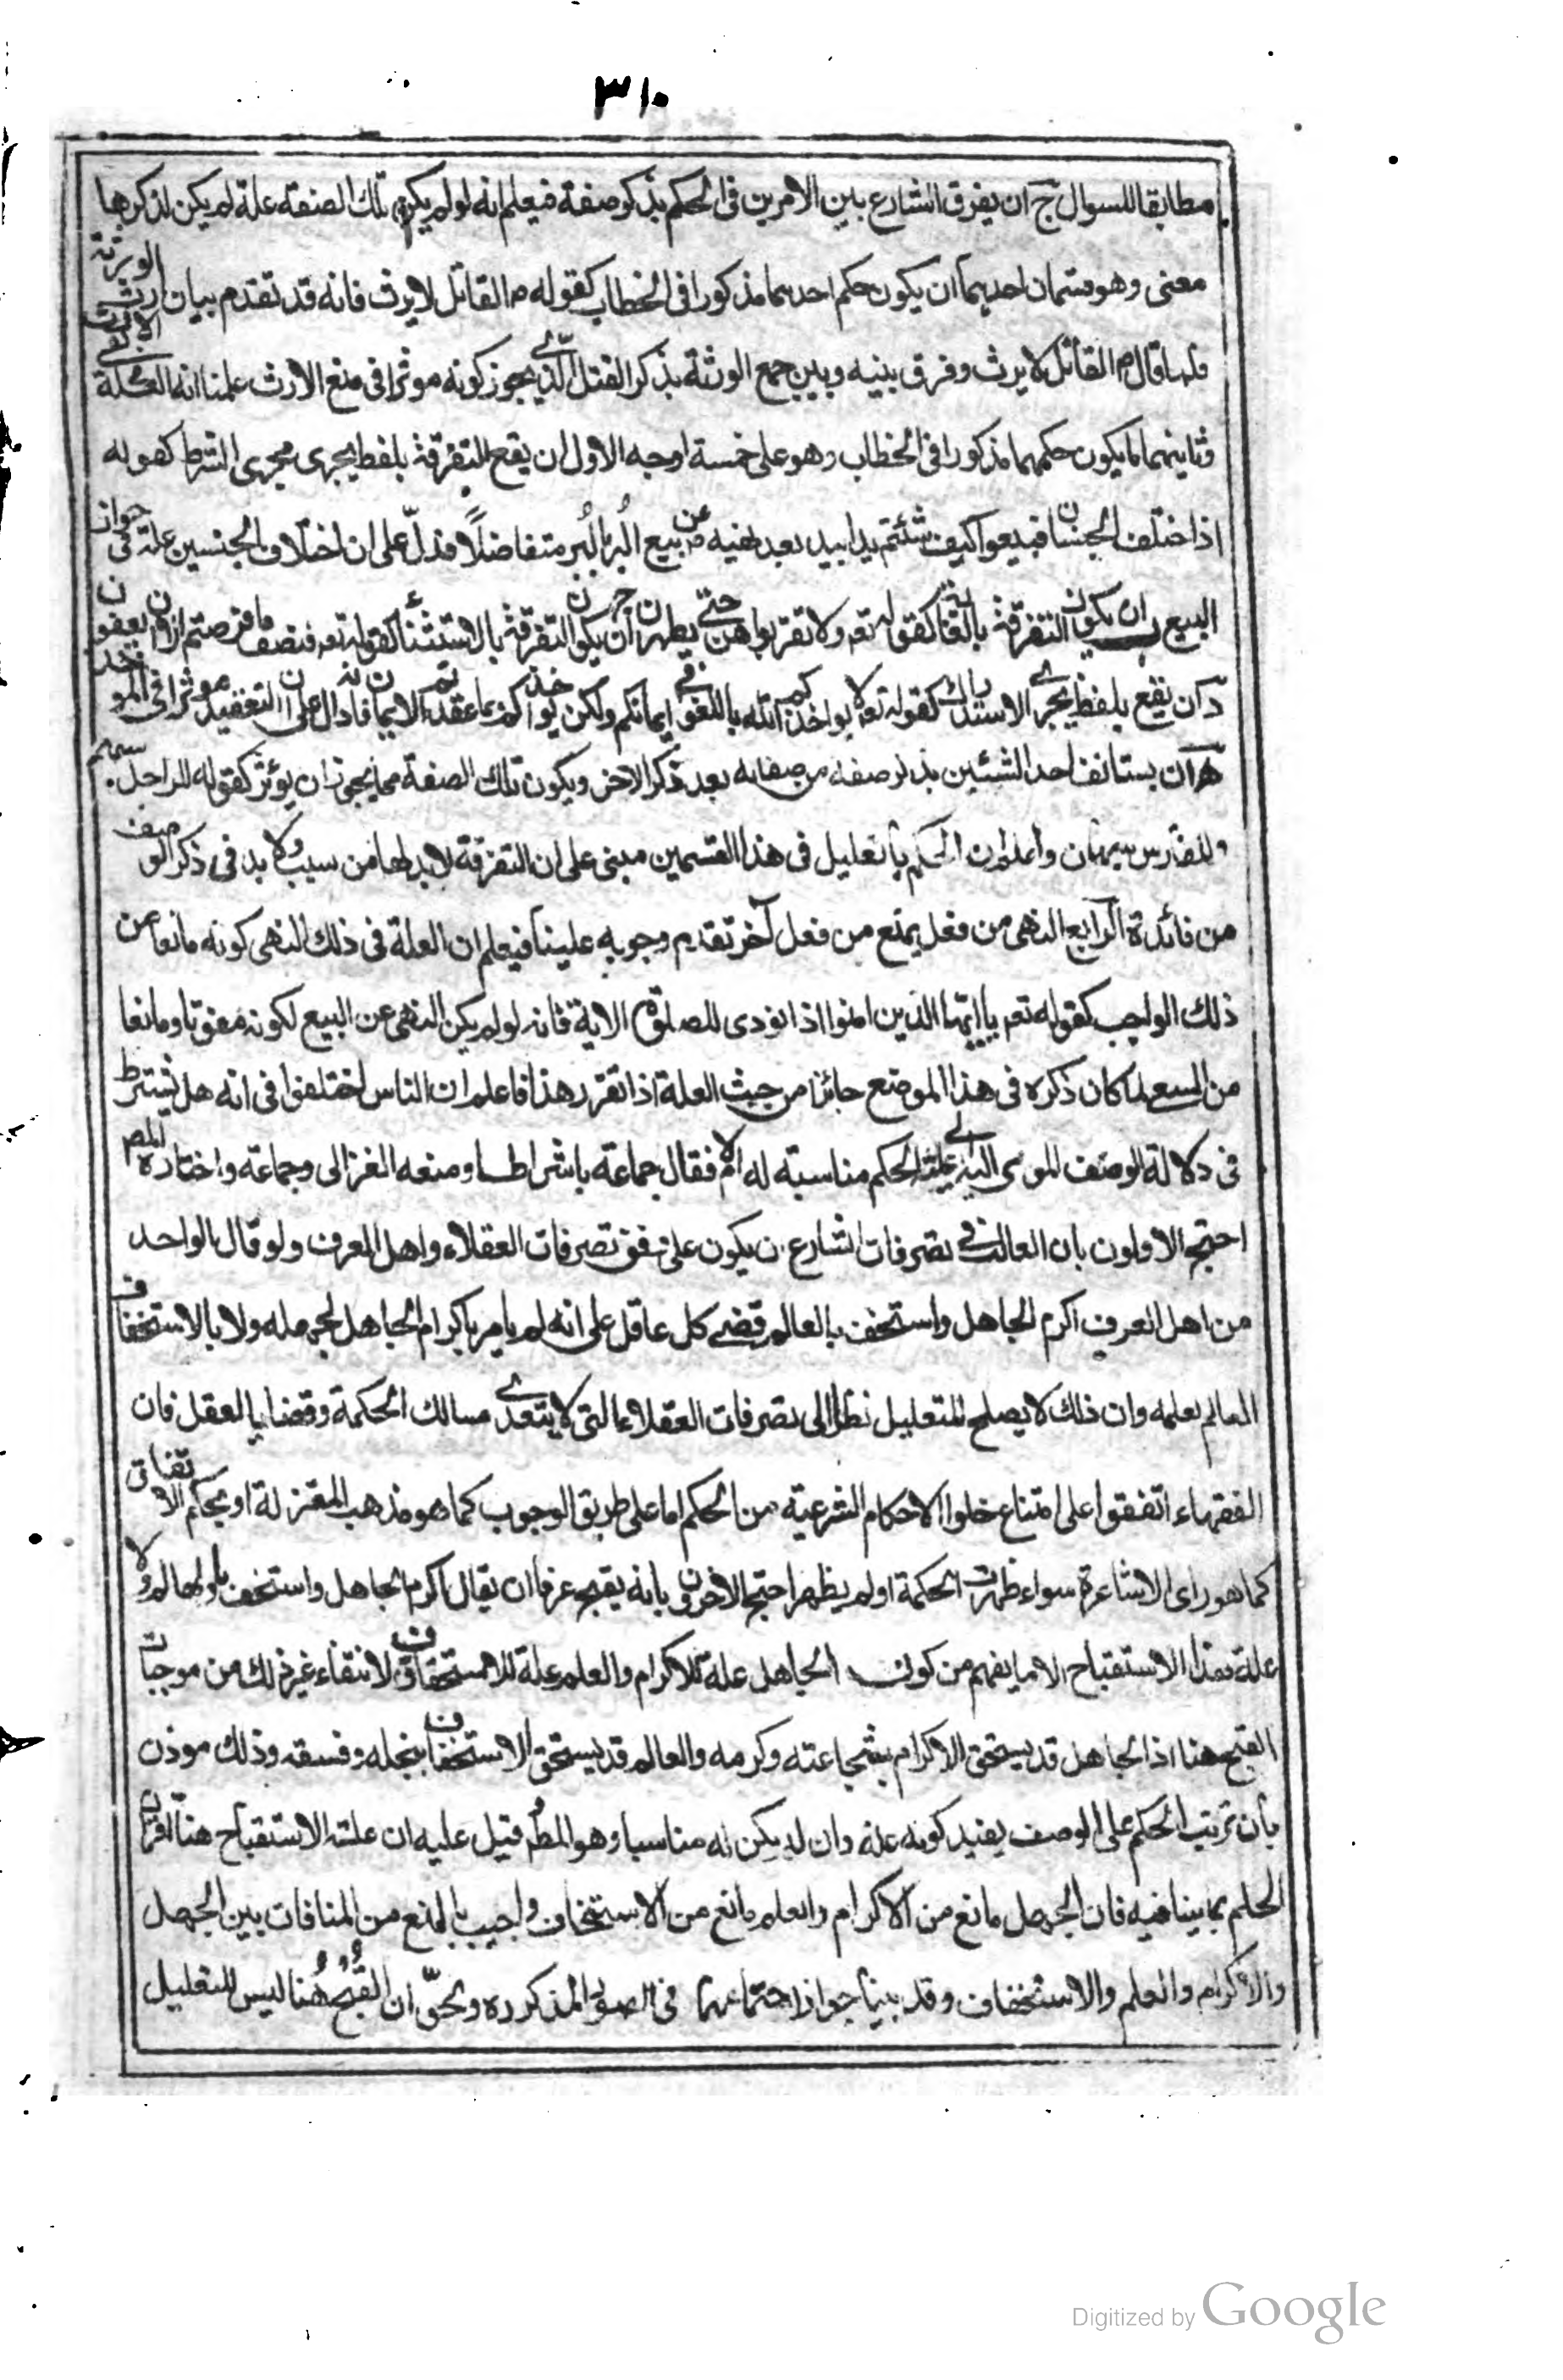 ٣١٠
مطابقا للسوال ج ان يفرق الشارع بين الامرين فى الحكم بذكر صفة فيعلم انه لو لم يكن تلك الصفة علة لم يكن لذكرها
معنى وهو قسمان احدهما ان يكون حكم احدهما مذكورا فى الخطاب كقوله م القاتل لا يرث فانه قد تقدم بيان ارث الورثة
فلما قال م القاتل لا يرث وفرق بينه وبين جميع الورثة بذكر القتل الذى يجوز كونه موثرا فى منع الارث علمنا انه العلة
وثانيهما ما يكون حكمهما مذكورا فى الخطاب وهو على خمسة اوجه الاول ان يقع التفرقة بلفظ يجرى مجرى الشرط كقوله
اذا اختلف الجنسان فبيعوا كيف شئتم يدا بيد بعد نهيه عن بيع البُر بالبُر متفاضلًا فدلّ على ان اختلاف الجنسين علة فى جواز
البيع ب ان يكون التفرقة بالغاية كقوله تعه ولا تقربوهن حتى يطهرن ج ان يكون التفرقة بالاستثناء كقوله تعه فنصف ما فرضتم الا ان يعفون
د ان يقع بلفظ يجرى الاستدراك كقوله تعه لا يواخذكم الله باللغو فى ايمانكم ولكن يواخذكم بما عقدتم الايمان فدل على ان التعقيد موثرا فى المواخذة
ه ان يستانف احد الشئين بذكر صفة من صفاته بعد ذكر الاخر ويكون تلك الصفة مما يجوز ان يؤثر كقوله للراجل سهم
وللفارس سهمان واعلم ان الحكم بالتعليل فى هذا القسمين مبنى على ان التفرقة لا بد لها من سبب ولا بد فى ذكر الوصف
من فائدة الرابع النهى من فعل يمنع من فعل آخر تقدم وجوبه علينا فيعلم ان العلة فى ذلك النهى كونه مانعا من
ذلك الواجب كقوله تعه يا ايها الذين امنوا اذا نودى للصلوة الاية فانه لو لم يكن النهى عن البيع لكونه مفوتا ومانعا
من السعى لما كان ذكره فى هذا الموضع جائزا من حيث العلة اذا تقرر هذا فاعلم ان الناس اختلفوا فى انه هل يشترط
فى دلالة الوصف المومى اليه على علية الحكم مناسبته له ام لا فقال جماعة باشتراطها ومنعه الغزالى وجماعة واختاره المص
احتج الاولون بان الغالب فى تصرفات الشارع ان يكون على وفق تصرفات العقلاء واهل العرف ولو قال الواحد
من اهل العرف اكرم الجاهل واستخف بالعالم قضى كل عاقل على انه لم يامر باكرام الجاهل لجهله ولا بالاستخفاف
العالم لعلمه وان ذلك لا يصلح للتعليل نظرا الى تصرفات العقلاء التى لا يتعدى مسالك الحكمة وقضايا العقل فان
الفقهاء اتفقوا على امتناع خلو الاحكام الشرعية من الحكم اما على طريق الوجوب كما هو مذهب المعتزلة او بحكم الاتفاق
كما هو راى الاشاعرة سواء ظهرت الحكمة او لم يظهر احتج الاخرون بانه يقبح عرفا ان يقال اكرم الجاهل واستخف بالعالم ولا
علة لهذا الاستقباح الا ما يفهم من كون الجاهل علة للاكرام والعلم علة للاستخفاف لانتفاء غير ذلك من موجبات
القبح هنا اذ الجاهل قد يستحق الاكرام بشجاعته وكرمه والعالم قد يستحق الاستخفاف ببخله وفسقه وذلك موذن
بان ترتيب الحكم على الوصف يفيد كونه علة وان لم يكن له مناسبا وهو المط وقيل عليه ان علته الاستقباح هنا اقتران
الحكم بما ينافيه فان الجهل مانع من الاكرام والعلم مانع من الاستخفاف واجيب بالمنع من المنافات بين الجهل
والاكرام والعلم والاستخفاف وقد بينا جواز اجتماعهما فى الصور المذكوره والحقّ ان القُبح هُنا ليس للتعليل
Digitized by Google